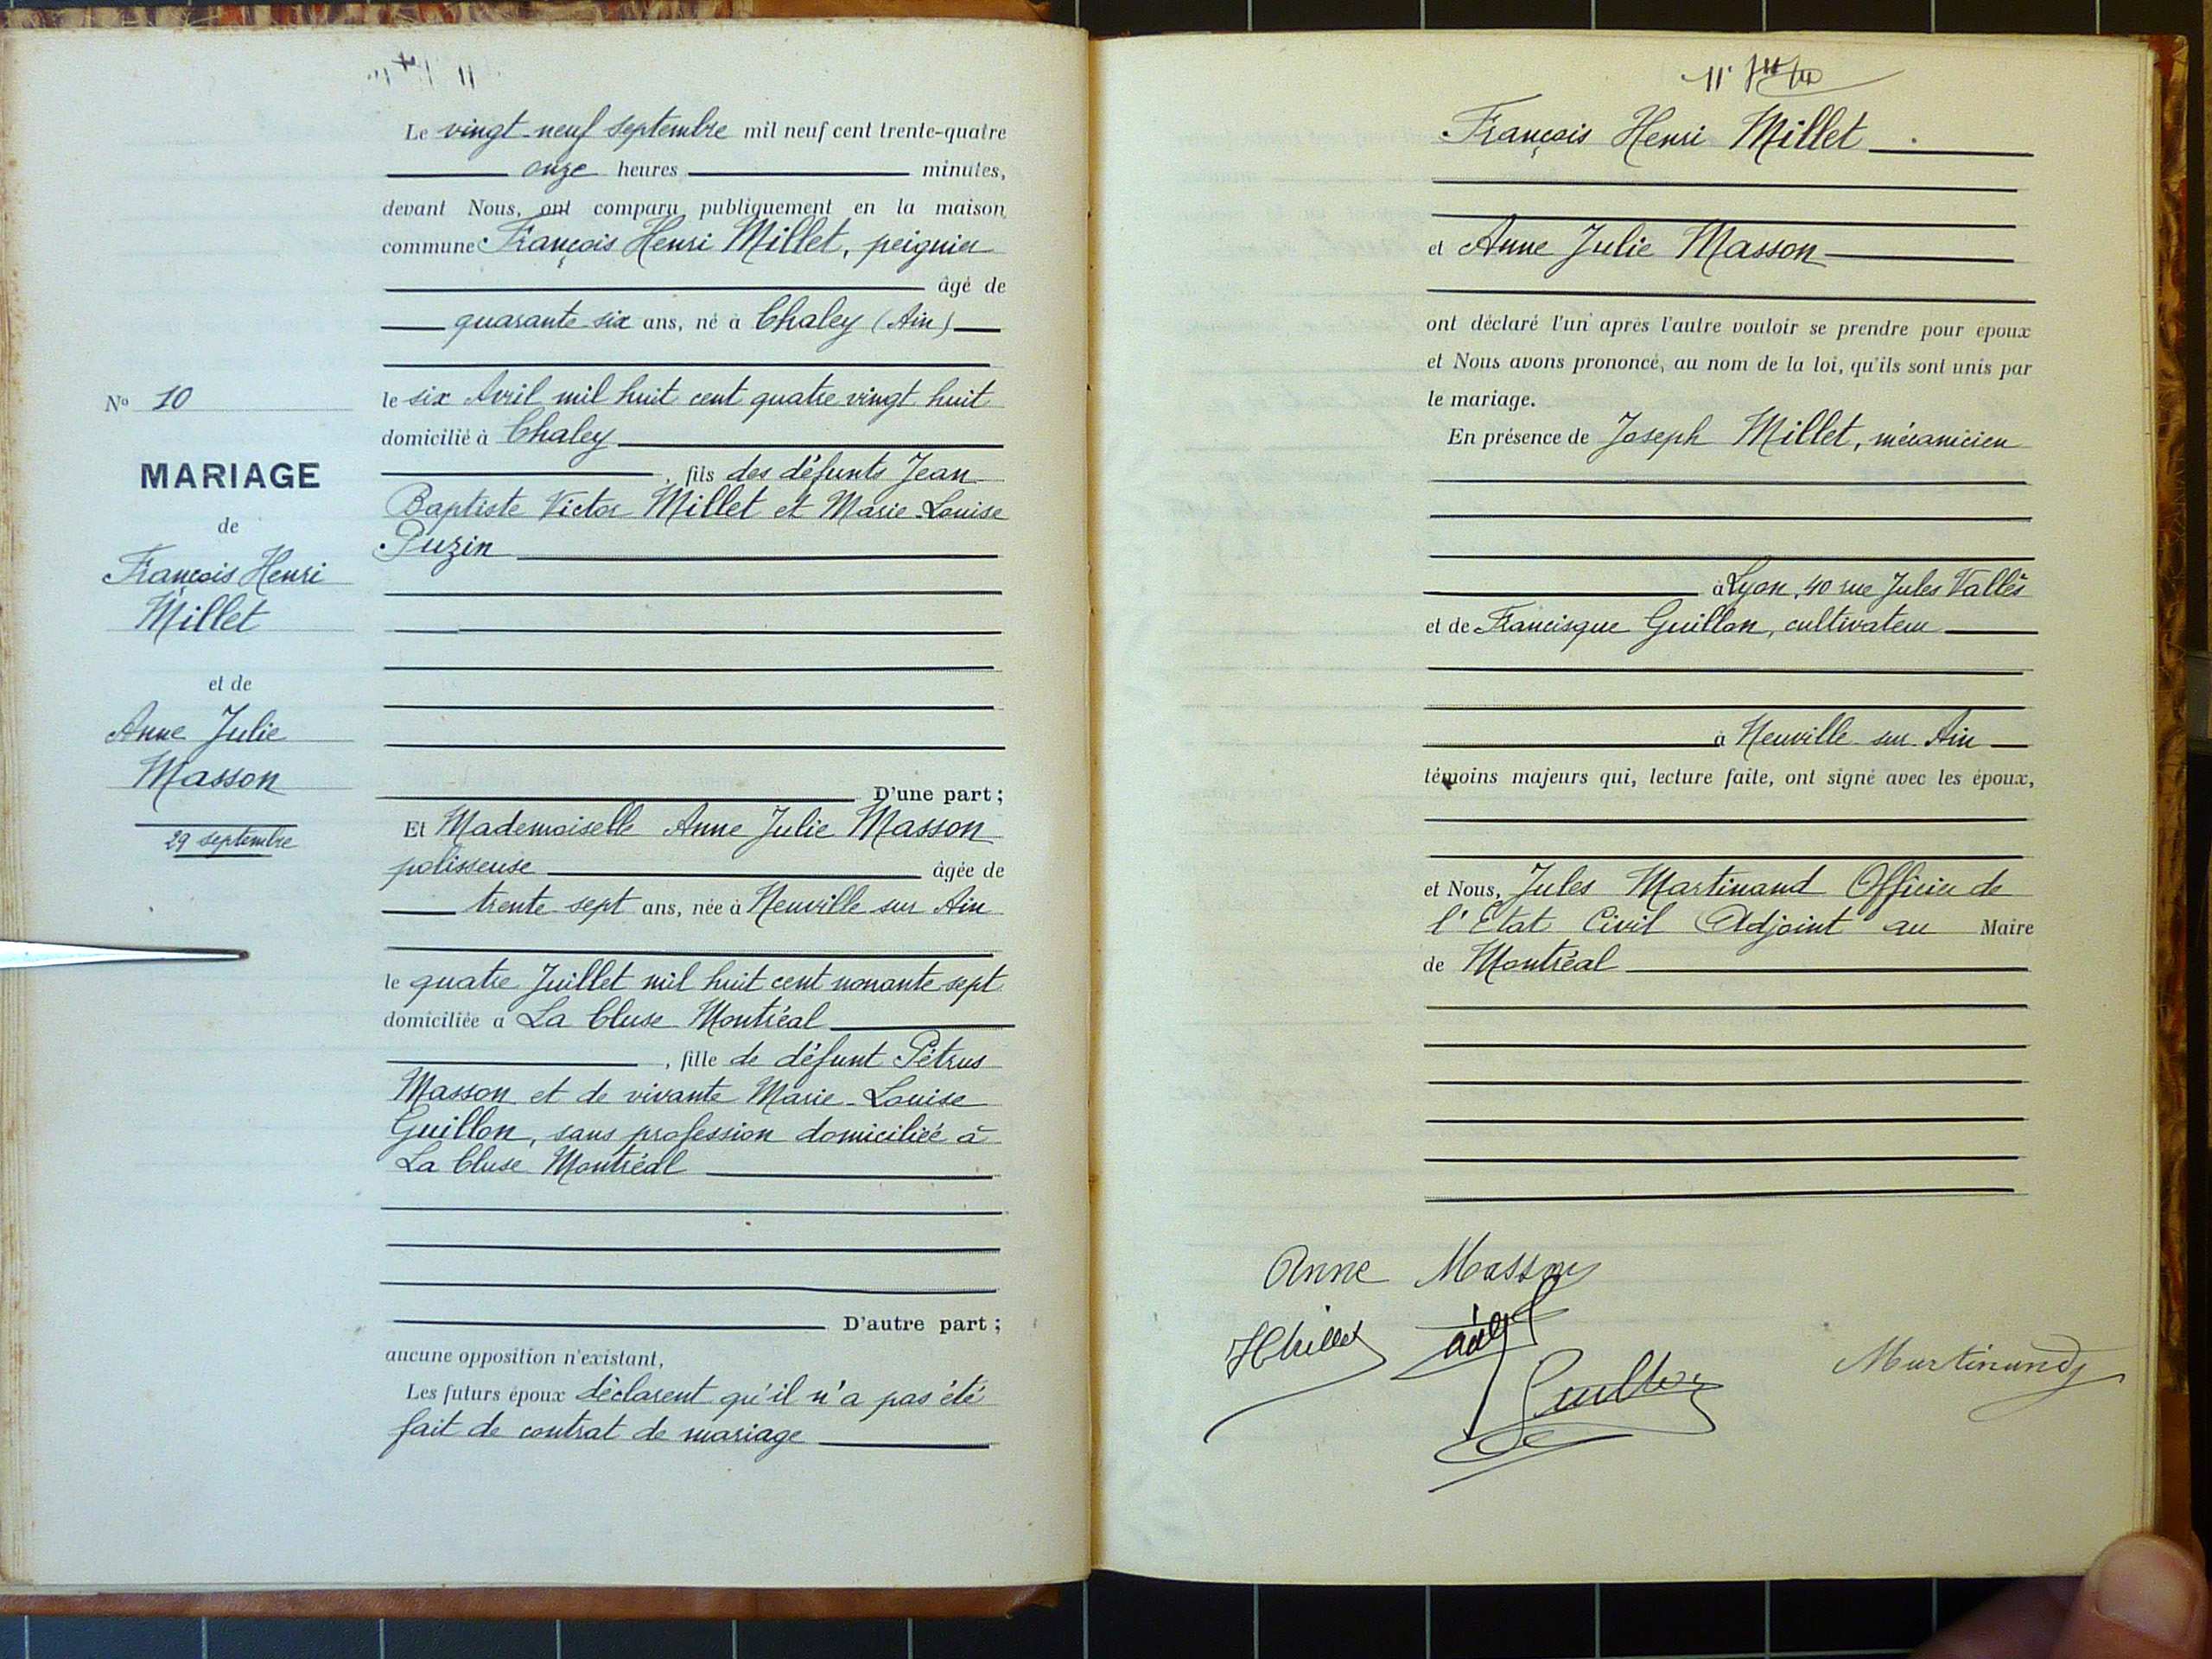 Le vingt-neuf Septembre mil neuf cent trente-quatre
onze heures minutes,
devant Nous, ont comparu publiquement en la maison
commune François Henri Millet, peignier
âgé de
quarante-six ans, né à Chaley (Ain)
le six Avril mil huit cent quatre vingt huit
domicilié à Chaley
, fils des défunts Jean-
Baptiste Victor Millet et Marie-Louise
Puzin
D'une part ;
Et Mademoiselle Anne Julie Masson
polisseuse âgée de
trente-sept ans, née à Neuville sur Ain
le quatre Juillet mil huit cent nonante sept
domiciliée à La Cluse Montréal
, fille de défunt Pétrus
Masson et de vivante Marie-Louise
Guillon, sans profession domiciliée à
La Cluse Montréal
D'autre part ;
aucune opposition n'existant,
Les futurs époux déclarent qu'il n'a pas été
fait de contrat de mariage
No 10
MARIAGE
de
François Henri
Millet
et de
Anne Julie
Masson
29 septembre
François Henri Millet
et Anne Julie Masson
ont déclaré l'un après l'autre vouloir se prendre pour époux
et Nous avons prononcé, au nom de la loi, qu'ils sont unis par
le mariage.
En présence de Joseph Millet, mécanicien
à Lyon, 40 rue Jules Vallès
et de Francisque Guillon, cultivateur
à Neuville sur Ain
témoins majeurs qui, lecture faite, ont signé avec les époux,
et Nous, Jules Martinand Officier de
l'Etat Civil Adjoint au Maire
de Montréal
Anne Masson
Guillon
Martinand